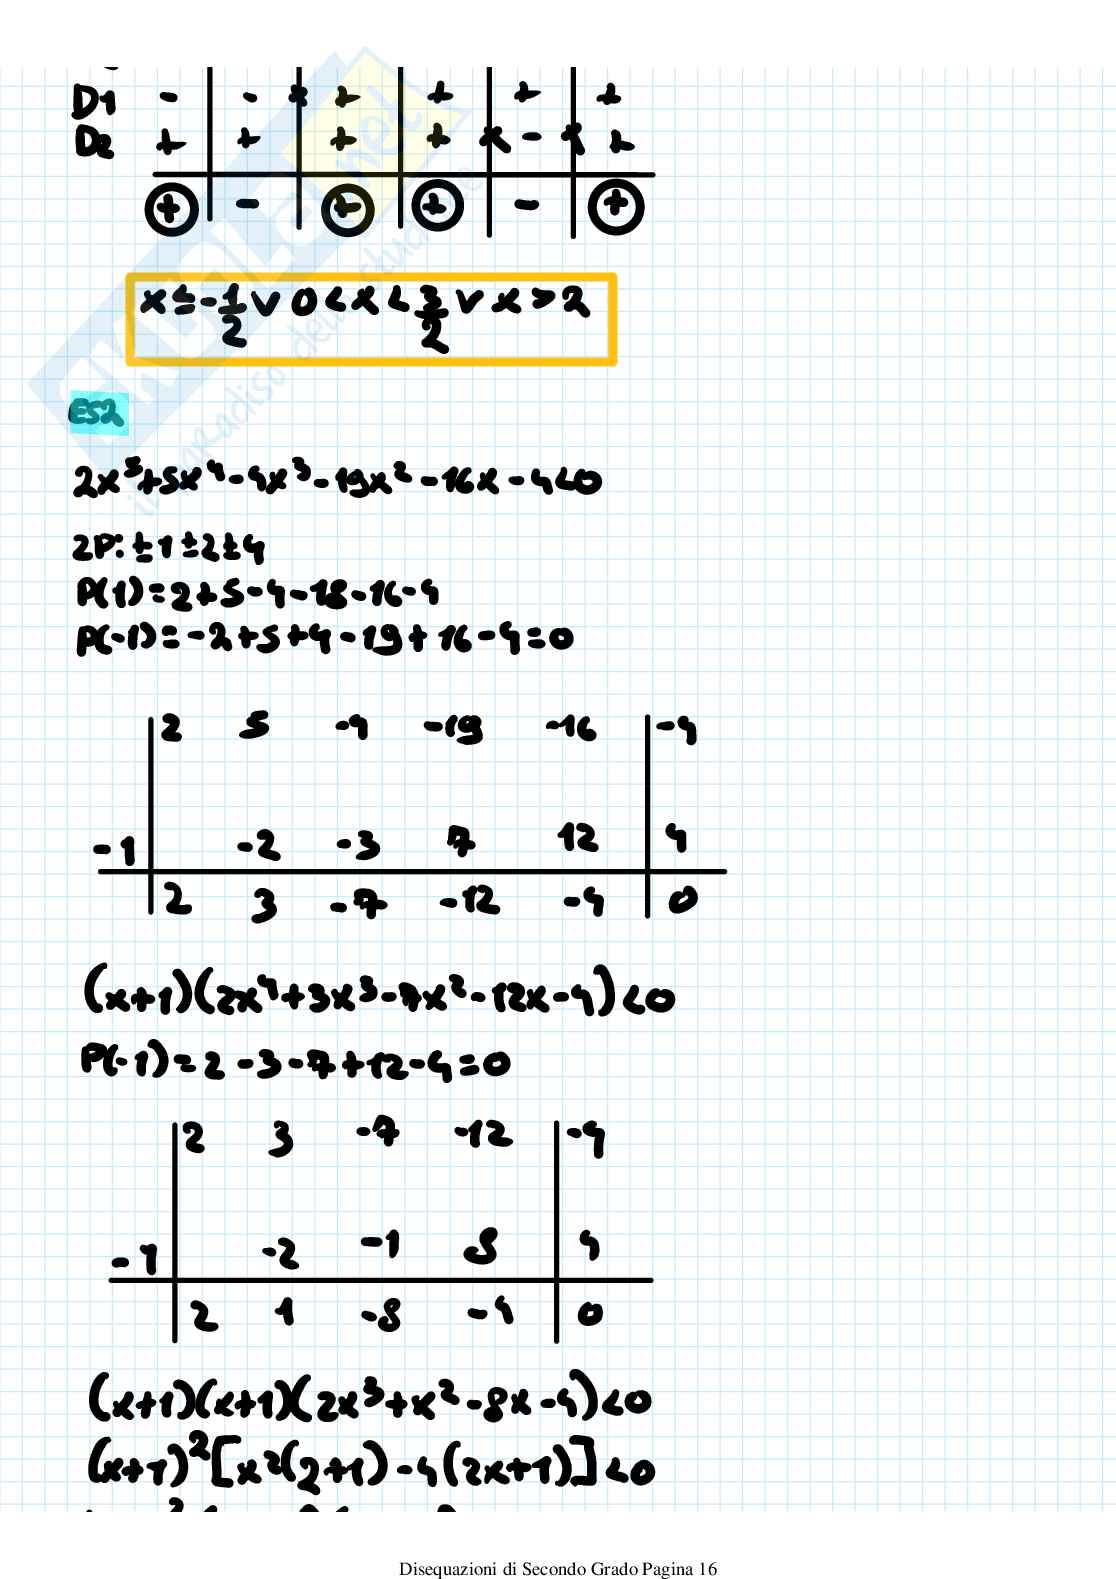 D1 - - x + + + +
D2 + + + + x - x +
+ - + + - +
x ≤ -1/2 ∨ 0 < x < 3/2 ∨ x > 2
ES2
2x⁵+5x⁴-4x³-19x²-16x-4<0
ZP: ±1 ±2 ±4
P(1)=2+5-4-18-16-4
P(-1)=-2+5+4-19+16-4=0
2 5 -4 -19 -16 -4
-1 -2 -3 7 12 4
2 3 -7 -12 -4 0
(x+1)(2x⁴+3x³-7x²-12x-4)<0
P(-1)=2-3-7+12-4=0
2 3 -7 -12 -4
-1 -2 -1 8 4
2 1 -8 -4 0
(x+1)(x+1)(2x³+x²-8x-4)<0
(x+1)²[x²(2+1)-4(2x+1)]<0
Disequazioni di Secondo Grado Pagina 16